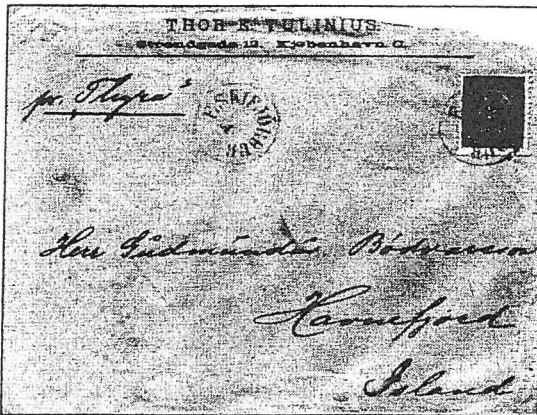 THOR E. TULINIUS
Strandgade 12, Kjøbenhavn C.
pr. "Thyra"
ESKIFJÖRÐUR
Herr Gudmundur Bödvarsson
Havnefjord
Island